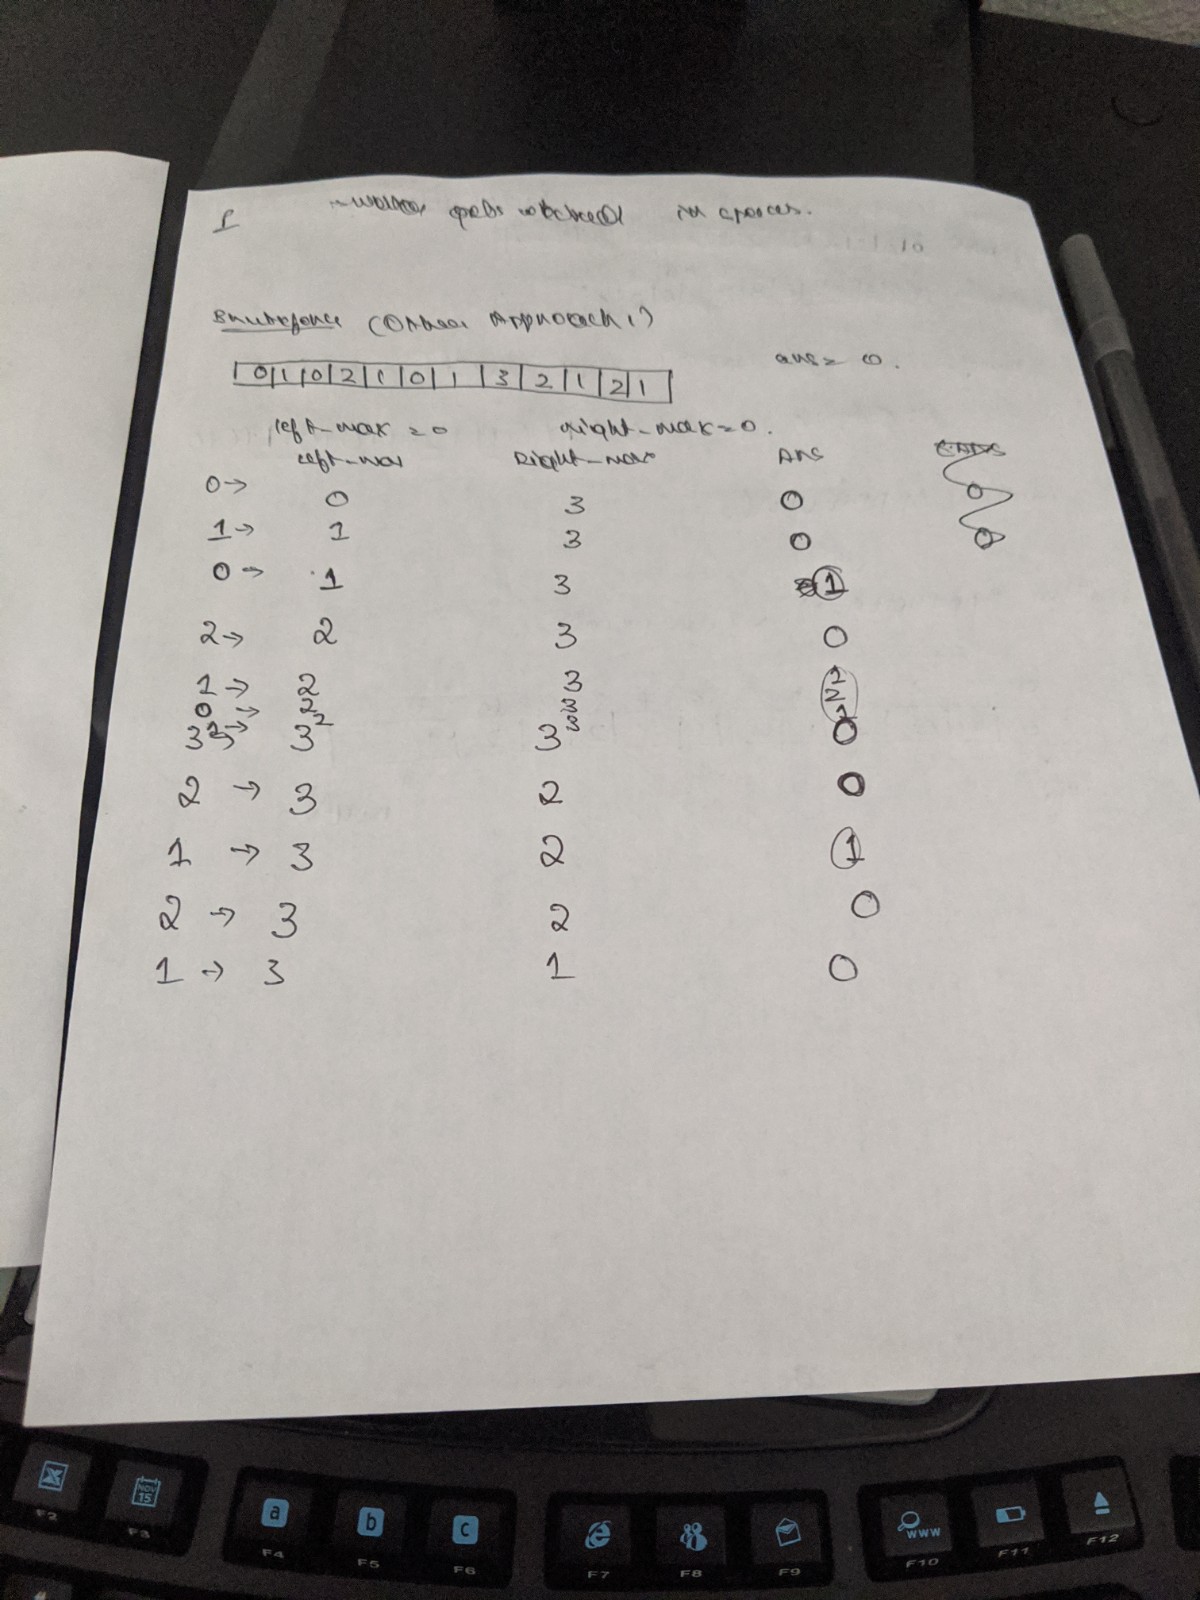 1 water gets in spaces.
Bruteforce (Other Approach 1)
0 1 0 2 1 0 1 3 2 1 2 1
ans = 0.
left-max = 0 right-max = 0.
left-max Right-max Ans
0 → 0 3 0
1 → 1 3 0
0 → 1 3 1
2 → 2 3 0
1 → 2 3 1
0 → 2 3 2
1 → 2 3 1
3 → 3 3 0
2 → 3 2 0
1 → 3 2 1
2 → 3 2 0
1 → 3 1 0
a b c
NOV 15
WWW
F2 F3 F4 F5 F6 F7 F8 F9 F10 F11 F12